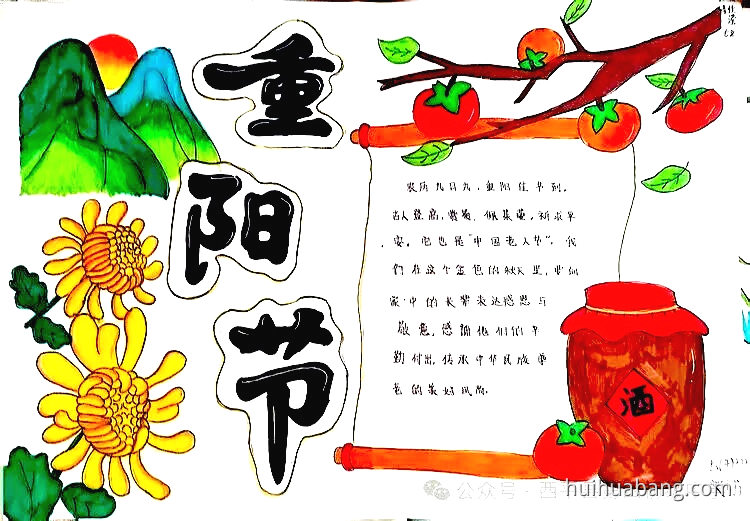 重
阳
节
农历九月九，重阳佳节到。
古人登高，赏菊，佩茱萸，祈求平
安。它也是"中国老人节"。我
们在这个金色的秋天里，要向
家中的长辈表达感恩与
敬意，感谢他们的辛
勤付出，传承中华民族尊
老的美好风尚。
酒
公众号·西
huihuabang.com